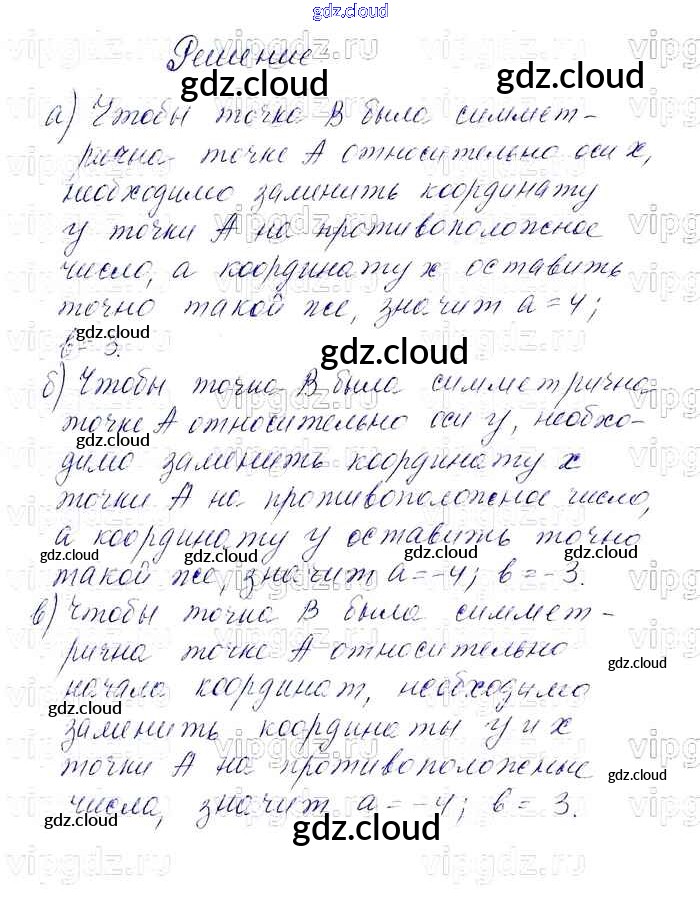 gdz.cloud
Решение
gdz.cloud gdz.cloud
а) Чтобы точка В была симмет-
рична точке А относительно оси х,
необходимо заменить координату
у точки А на противоположное
число, а координату х оставить
точно такой же, значит а = 4;
в = 3.
gdz.cloud gdz.cloud
б) Чтобы точка В была симметрична
точке А относительно оси у, необхо-
gdz.cloud
димо заменить координату х
точки А на противоположное число,
а координату у оставить точно
gdz.cloud gdz.cloud gdz.cloud gdz.cloud
такой же, значит а = -4; в = -3.
в) Чтобы точка В была симмет-
рична точке А относительно
gdz.cloud
начала координат, необходимо
gdz.cloud
заменить координаты у и х
точки А на противоположные
gdz.cloud
числа, значит а = -4; в = 3.
gdz.cloud gdz.cloud